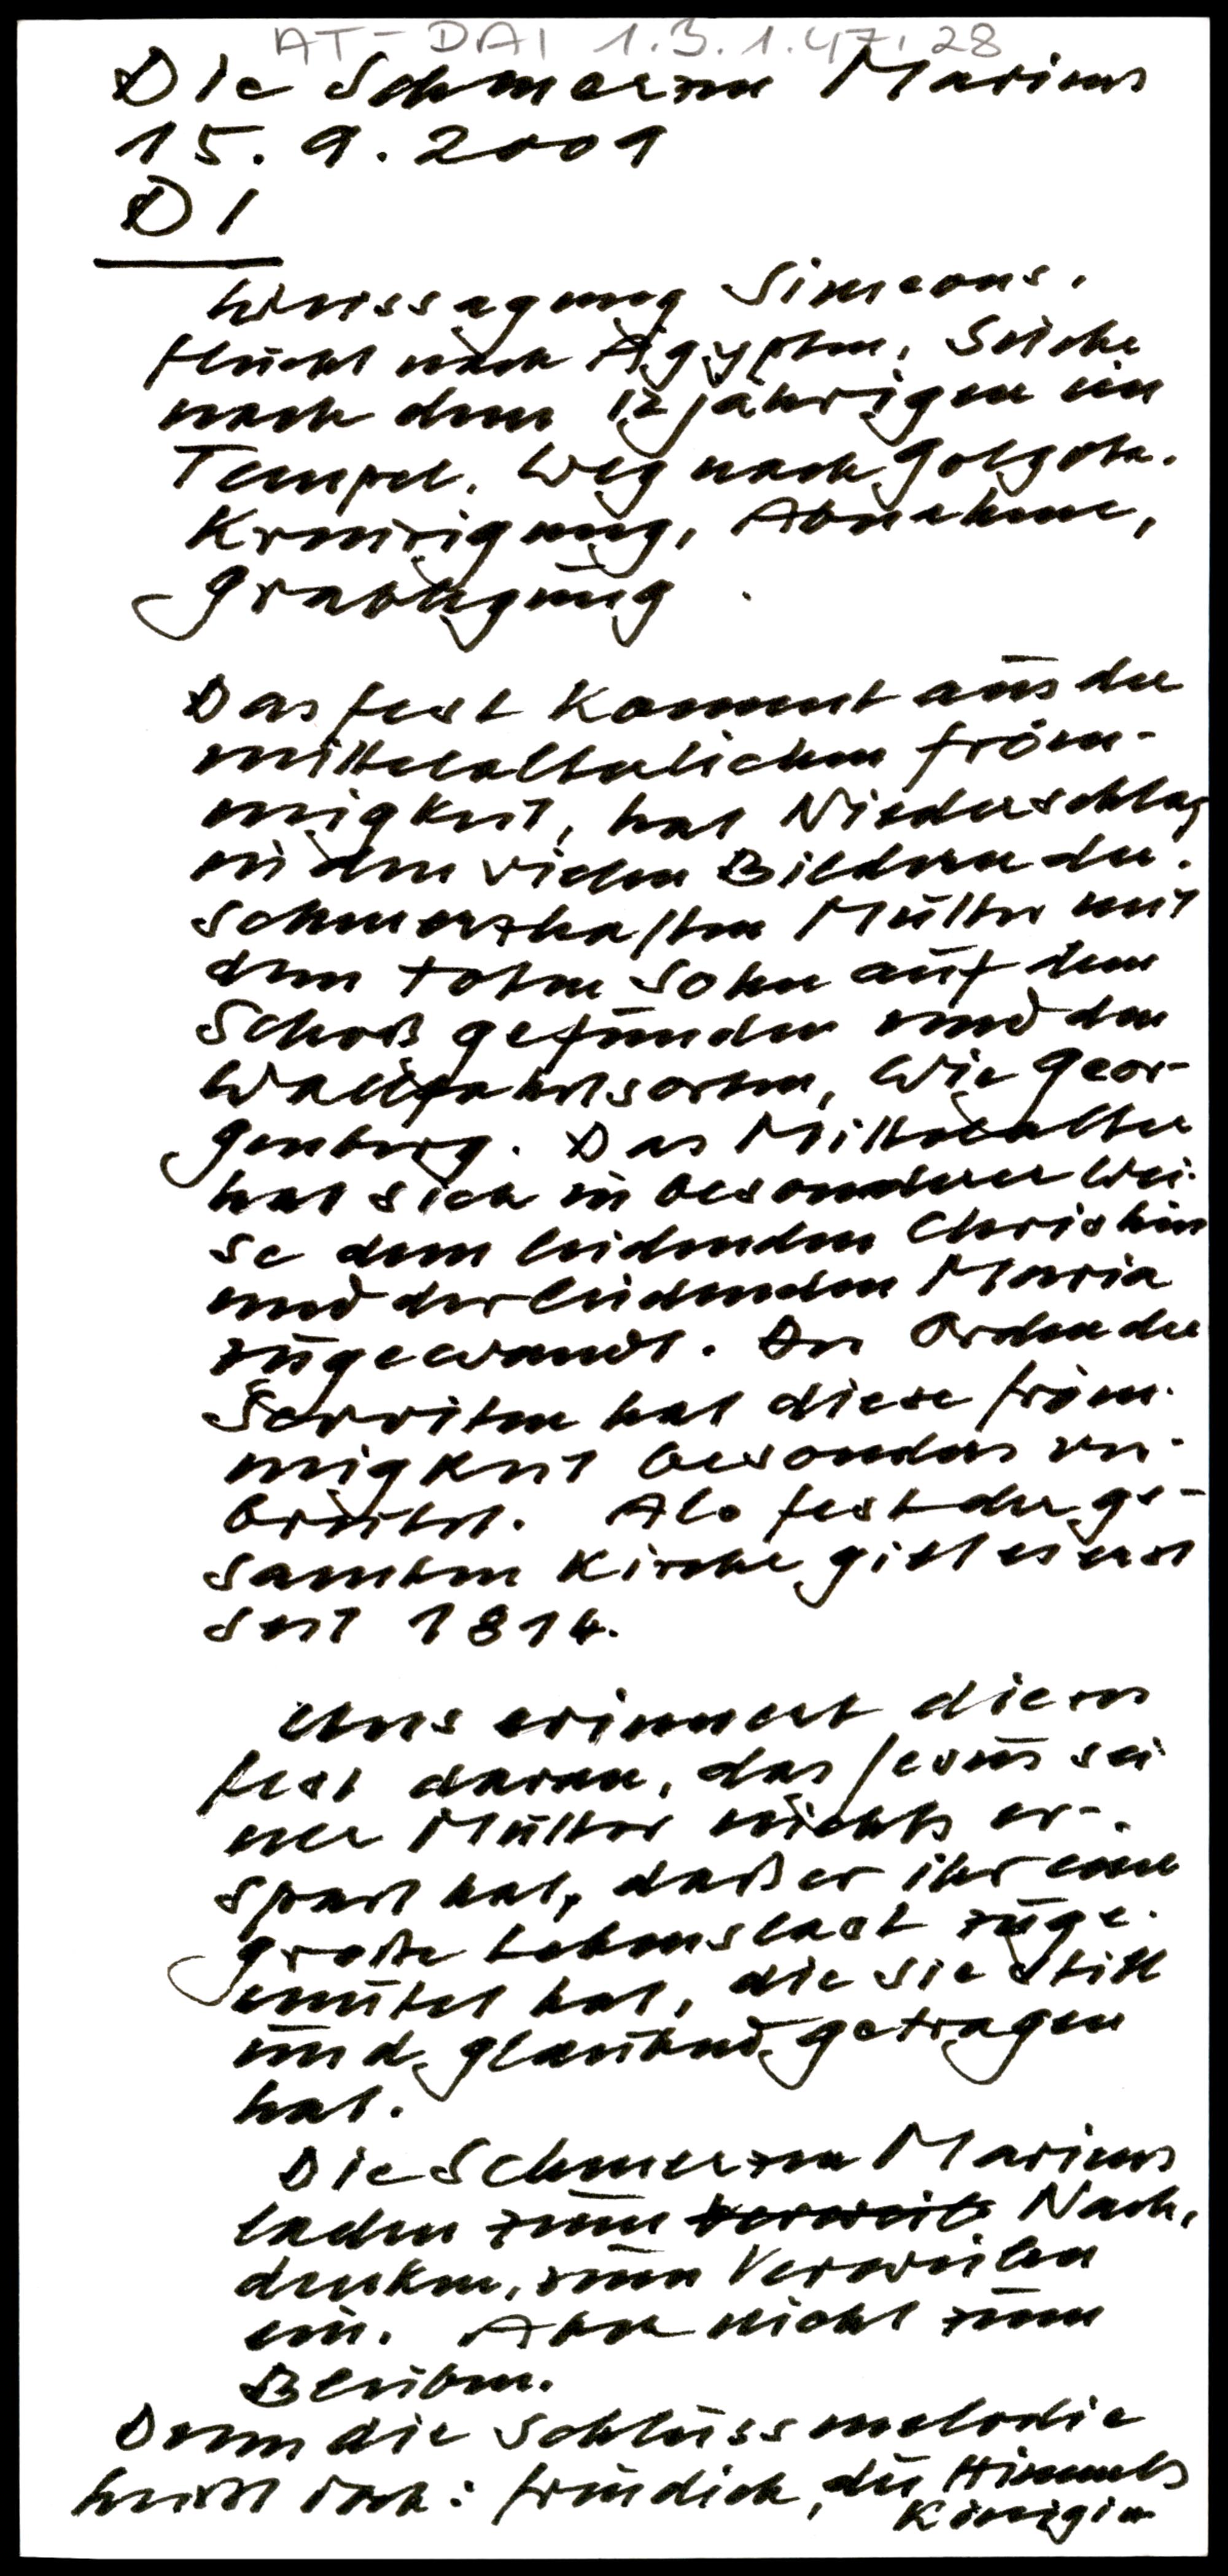 AT-DAI 1.3.1.47.28
Die Schmerzen Mariens
15.9.2009
DI
Weissagung Simeons,
Flucht nach Ägypten, Suche
nach dem 12jährigen im
Tempel, Weg nach Golgota.
Kreuzigung, Abnahme,
Grablegung.
Das Fest kommt aus der
mittelalterlichen Fröm-
migkeit, hat Niederschlag
in den vielen Bildern der
schmerzhaften Mutter mit
dem toten Sohn auf dem
Schoß gefunden und den
Wallfahrtsorten, wie Geor-
genberg. Das Mittelalter
hat sich in besonderer Wei-
se dem leidenden Christus
und der leidenden Maria
zugewandt. Der Orden der
Serviten hat diese Fröm-
migkeit besonders ver-
breitet. Als Fest der ge-
samten Kirche gilt es erst
seit 1814.
Uns erinnert dieses
Fest daran, das Jesus sei
ner Mutter nichts er-
spart hat, daß er ihr eine
große Lebenslast zuge-
mutet hat, die sie still
und glaubend getragen
hat.
Die Schmerzen Mariens
laden zum Verweile Nach-
denken, zum Verweilen
ein. Aber nicht zum
Bleiben.
Denn die Schlussmelodie
heißt doch: Freu dich, du Himmels
Königin